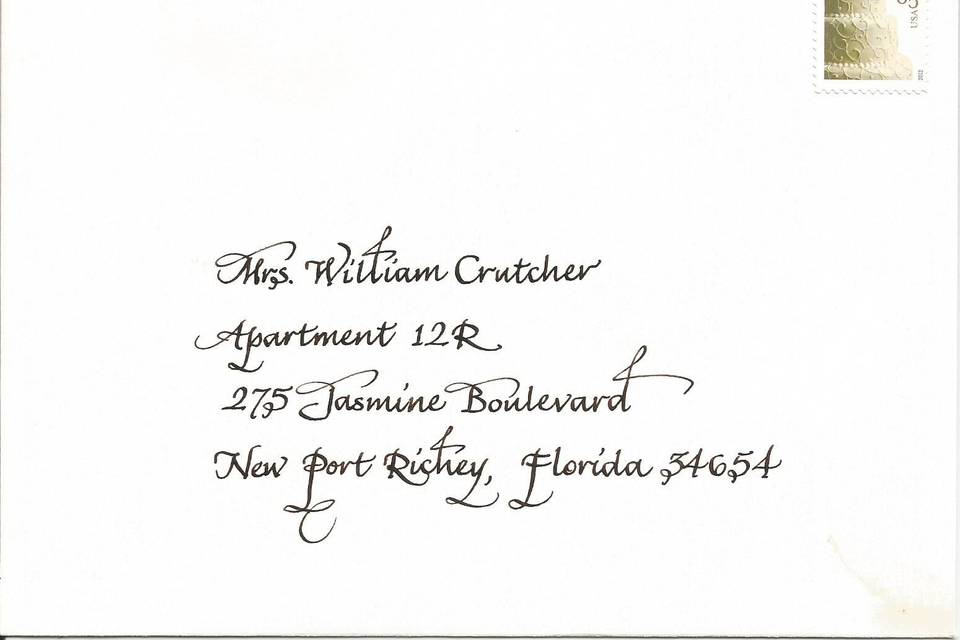 USA
2012
Mrs. William Crutcher
Apartment 12R
275 Jasmine Boulevard
New Port Richey, Florida 34654